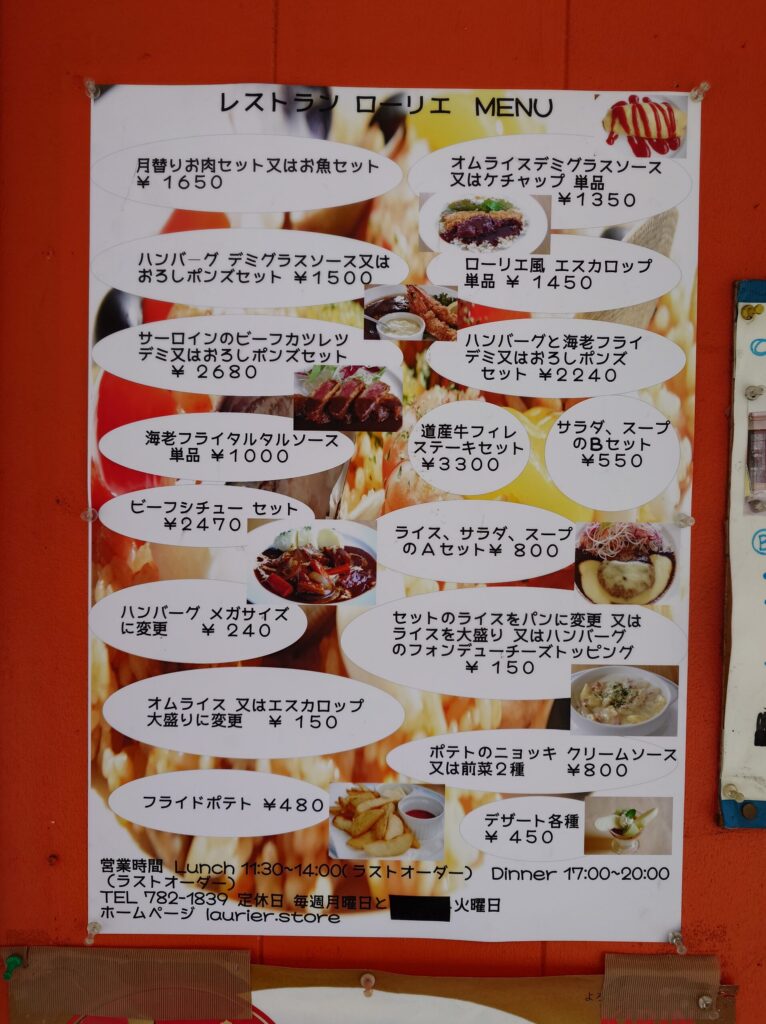 レストラン ローリエ MENU
月替りお肉セット又はお魚セット
¥ 1650
オムライスデミグラスソース
又はケチャップ 単品
¥1350
ハンバーグ デミグラスソース又は
おろしポンズセット ¥1500
ローリエ風 エスカロップ
単品 ¥ 1450
サーロインのビーフカツレツ
デミ又はおろしポンズセット
¥ 2680
ハンバーグと海老フライ
デミ又はおろしポンズ
セット ¥2240
海老フライタルタルソース
単品 ¥1000
道産牛フィレ
ステーキセット
¥3300
サラダ、スープ
のBセット
¥550
ビーフシチュー セット
¥2470
ライス、サラダ、スープ
のAセット¥ 800
ハンバーグ メガサイズ
に変更 ¥ 240
セットのライスをパンに変更 又は
ライスを大盛り 又はハンバーグ
のフォンデューチーズトッピング
¥ 150
オムライス 又はエスカロップ
大盛りに変更 ¥ 150
ポテトのニョッキ クリームソース
又は前菜2種 ¥800
フライドポテト ¥480
デザート各種
¥ 450
営業時間 Lunch 11:30~14:00(ラストオーダー) Dinner 17:00~20:00
(ラストオーダー)
TEL 782-1839 定休日 毎週月曜日と 火曜日
ホームページ laurier.store